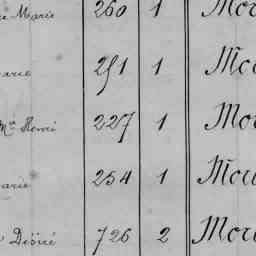 Marie 260 1 Mor
arie 251 1 Mo
Mce Henri 227 1 Mor
arie 254 1 Mor
Désiré 726 2 Mor